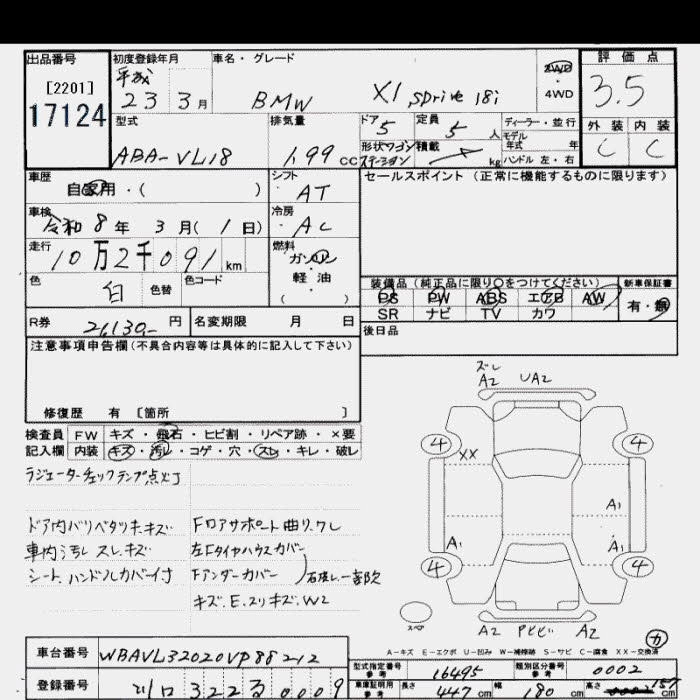 出品番号
[2201]
17124
初度登録年月
平成
23 3月
車名・グレード
BMW X1 sDrive 18i
2WD
・
4WD
評価点
3.5
外装 内装
C C
型式
ABA-VL18
排気量
1.99 cc
ドア
5
定員
5 人
形状 ワゴン
ステーション
積載
kg
ディーラー・並行
モデル
年式 年
ハンドル 左・右
車歴
自家用・( )
車検
令和 8年 3月(1日)
走行
10万2千091 km
色
白
色替
色コード
シフト
AT
冷房
AC
燃料
ガソリン
・
軽油
( )
セールスポイント(正常に機能するものに限ります)
装備品(純正品に限り○をつけてください)
PS PW ABS エアB AW
SR ナビ TV カワ
新車保証書
有・無
後日品
R券 26,130- 円
名変期限 月 日
注意事項申告欄(不具合内容等は具体的に記入して下さい)
修復歴 有 [箇所 ]
検査員 FW キズ・飛石・ヒビ割・リペア跡・×要
記入欄 内装 キズ・汚レ・コゲ・穴・スレ・キレ・破レ
ラジエーターチェックランプ点灯
ドア内バリベタツキ、キズ
車内汚レ スレ、キズ
シート、ハンドルカバー付
Fロアサポート曲り、ワレ
左Fタイヤハウスカバー
Fアンダーカバー
キズ、E、スリキズ、W2
ズレ
A2 UA2
4 4
XX
A1
A1 A1
4 4
スペア
A2 A2
A-キズ E-エクボ U-凹み W-補修跡 S-サビ C-腐食 XX-交換済
車台番号 WBAVL32020VP88212
登録番号 川口 322 3 0009
型式指定番号
参考
16495
類別区分番号
参考
0002
車庫証明用
参考
長さ 447 cm 幅 180 cm 高さ cm